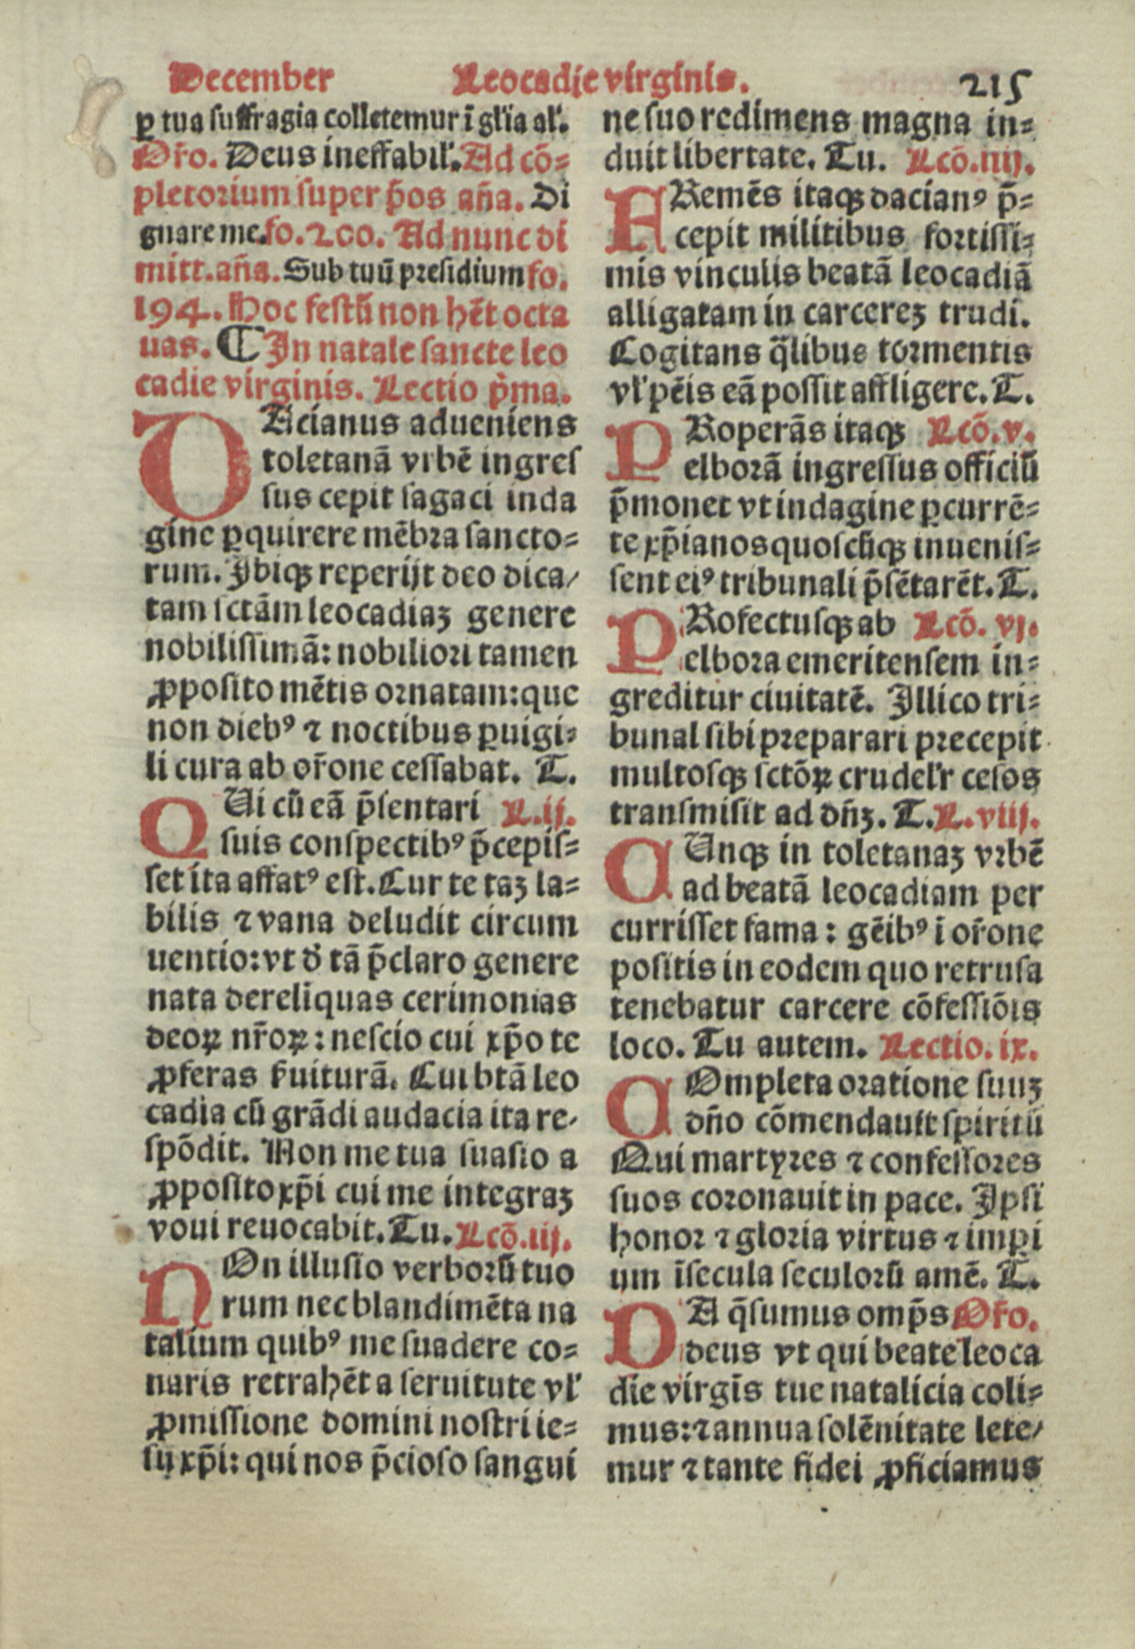 December Leocadie virginis. 215
ꝑ tua suffragia colletemur ī gl'ia al'.
Oro̅. Deus ineffabil'. Ad cō=
pletorium super p̄os an̄a. Di
gnare me. fo. 200. Ad nunc di
mitt. an̄a. Sub tuū presidium fo.
194. Hoc festū non hēt octa
uas. ¶ In natale sancte leo
cadie virginis. Lectio p̄ma.
DAcianus adueniens
toletanā vrbē ingres
sus cepit sagaci inda
gine ꝑquirere mēbra sancto=
rum. Ibiqꝫ reperijt deo dica/
tam sctām leocadiaꝫ genere
nobilissimā: nobiliori tamen
ꝓposito mētis ornatam: que
non dieb⁹ ⁊ noctibus ꝑuigi=
li cura ab or̄one cessabat. T.
QUi cū eā p̄sentari L.ij.
suis conspectib⁹ p̄cepis=
set ita affat⁹ est. Cur te taꝫ la=
bilis ⁊ vana deludit circum
uentio: vt d̄ tā p̄claro genere
nata derelīquas cerimonias
deoꝝ nr̄oꝝ: nescio cui xp̄o te
ꝓferas ẜuiturā. Cui btā leo
cadia cū grādi audacia ita re/
spōdit. Non me tua suasio a
ꝓposito xp̄i cui me integraꝫ
voui reuocabit. Tu. Lcō.iij.
NOn illusio verborū tuo
rum nec blandimēta na
talium quib⁹ me suadere co=
naris retrahēt a seruitute vl'
ꝓmissione domini nostri ie=
su xp̄i: qui nos p̄cioso sangui
ne suo redimens magna in=
duit libertate. Tu. Lcō.iiij.
FRemēs itaqꝫ dacian⁹ p̄=
cepit militibus fortissi=
mis vinculis beatā leocadiā
alligatam in carcereꝫ trudi.
Cogitans q̄libus tormentis
vl' pēis eā possit affligere. T.
PRoperās itaqꝫ Lcō.v.
elborā ingressus officiū
p̄monet vt indagine ꝑcurrē=
te xp̄ianos quoscūqꝫ inuenis=
sent ei⁹ tribunali p̄sētarēt. T.
PRofectusqꝫ ab Lcō. vj.
elbora emeritensem in=
greditur ciuitatē. Illico tri=
bunal sibi preparari precepit
multosqꝫ sctōꝝ crudel'r cesos
transmisit ad dn̄ꝫ. T. L.viij.
CUnqꝫ in toletanaꝫ vrbē
ad beatā leocadiam per
currisset fama: gēib⁹ ī or̄one
positis in eodem quo retrusa
tenebatur carcere cōfessiōis
loco. Tu autem. Lectio.ix.
COmpleta oratione suuꝫ
dn̄o cōmendauit spiritū
Qui martyres ⁊ confessores
suos coronauit in pace. Ipsi
honor ⁊ gloria virtus ⁊ imꝑi
um īsecula seculorū amē. T.
DA q̄sumus omp̄s Oro̅.
deus vt qui beate leoca
die virgīs tue natalicia coli=
mus: ⁊ annua solēnitate lete/
mur ⁊ tante fidei ꝓficiamus